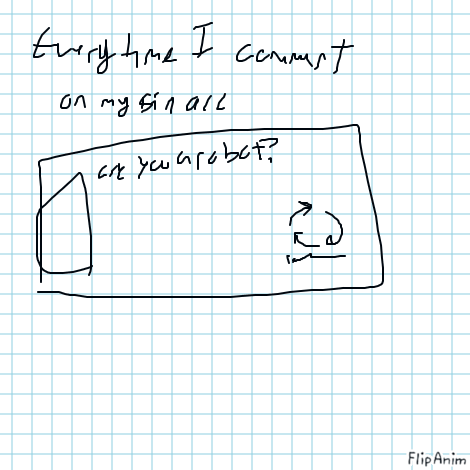 Everytime I comment
on my sin acc
are you a robot?
FlipAnim